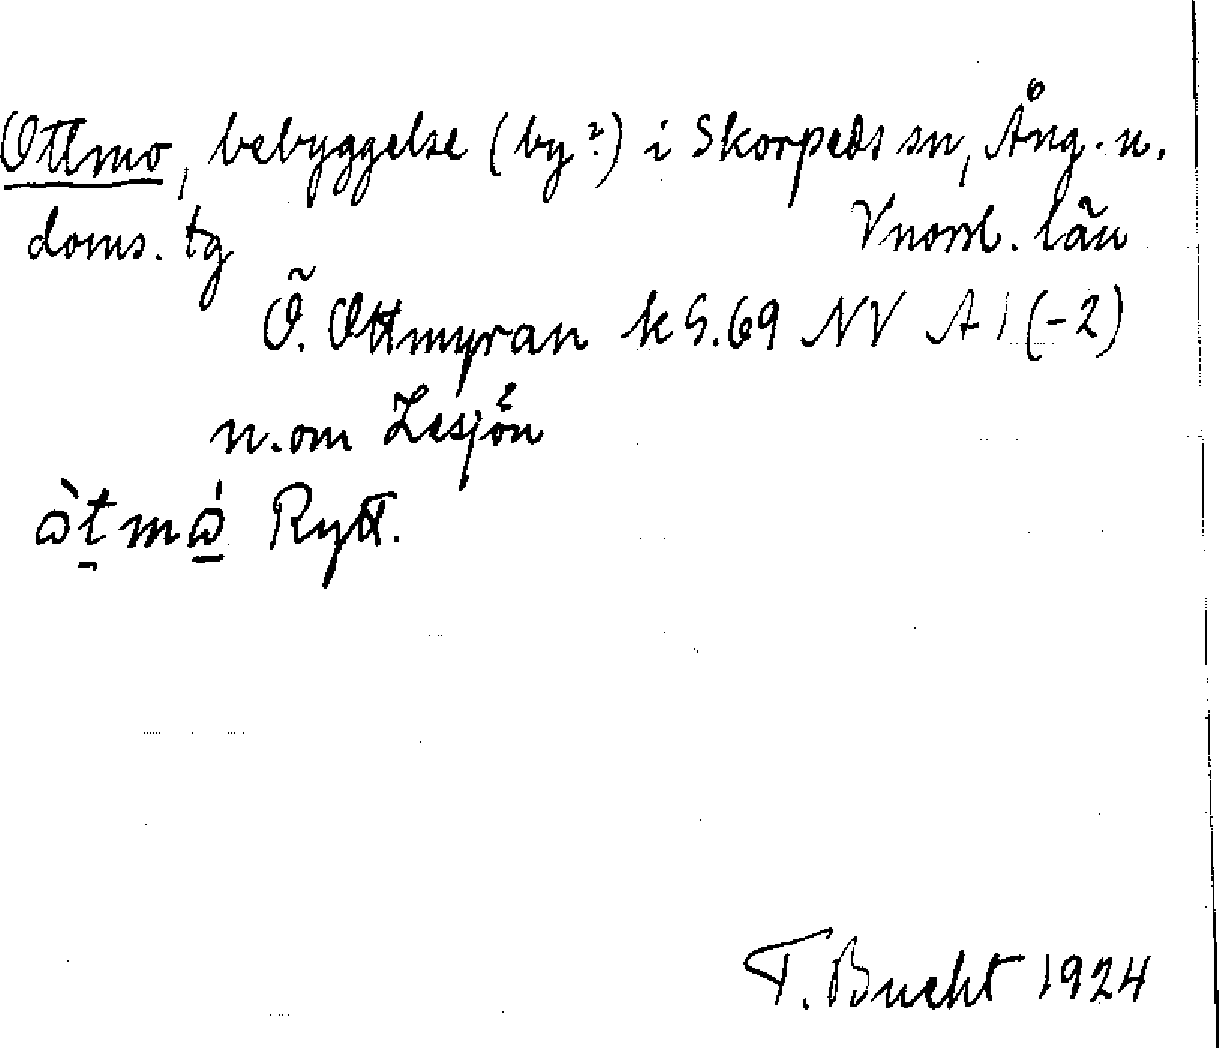 Ottmo, bebyggelse (by?) i Skorpeds sn, Ång. n.
doms. tg Vnorrl. län
Ö. Ottmyran k G.69 NV A 1 (-2)
n. om Lesjön
Rytt.
T. Bucht 1924